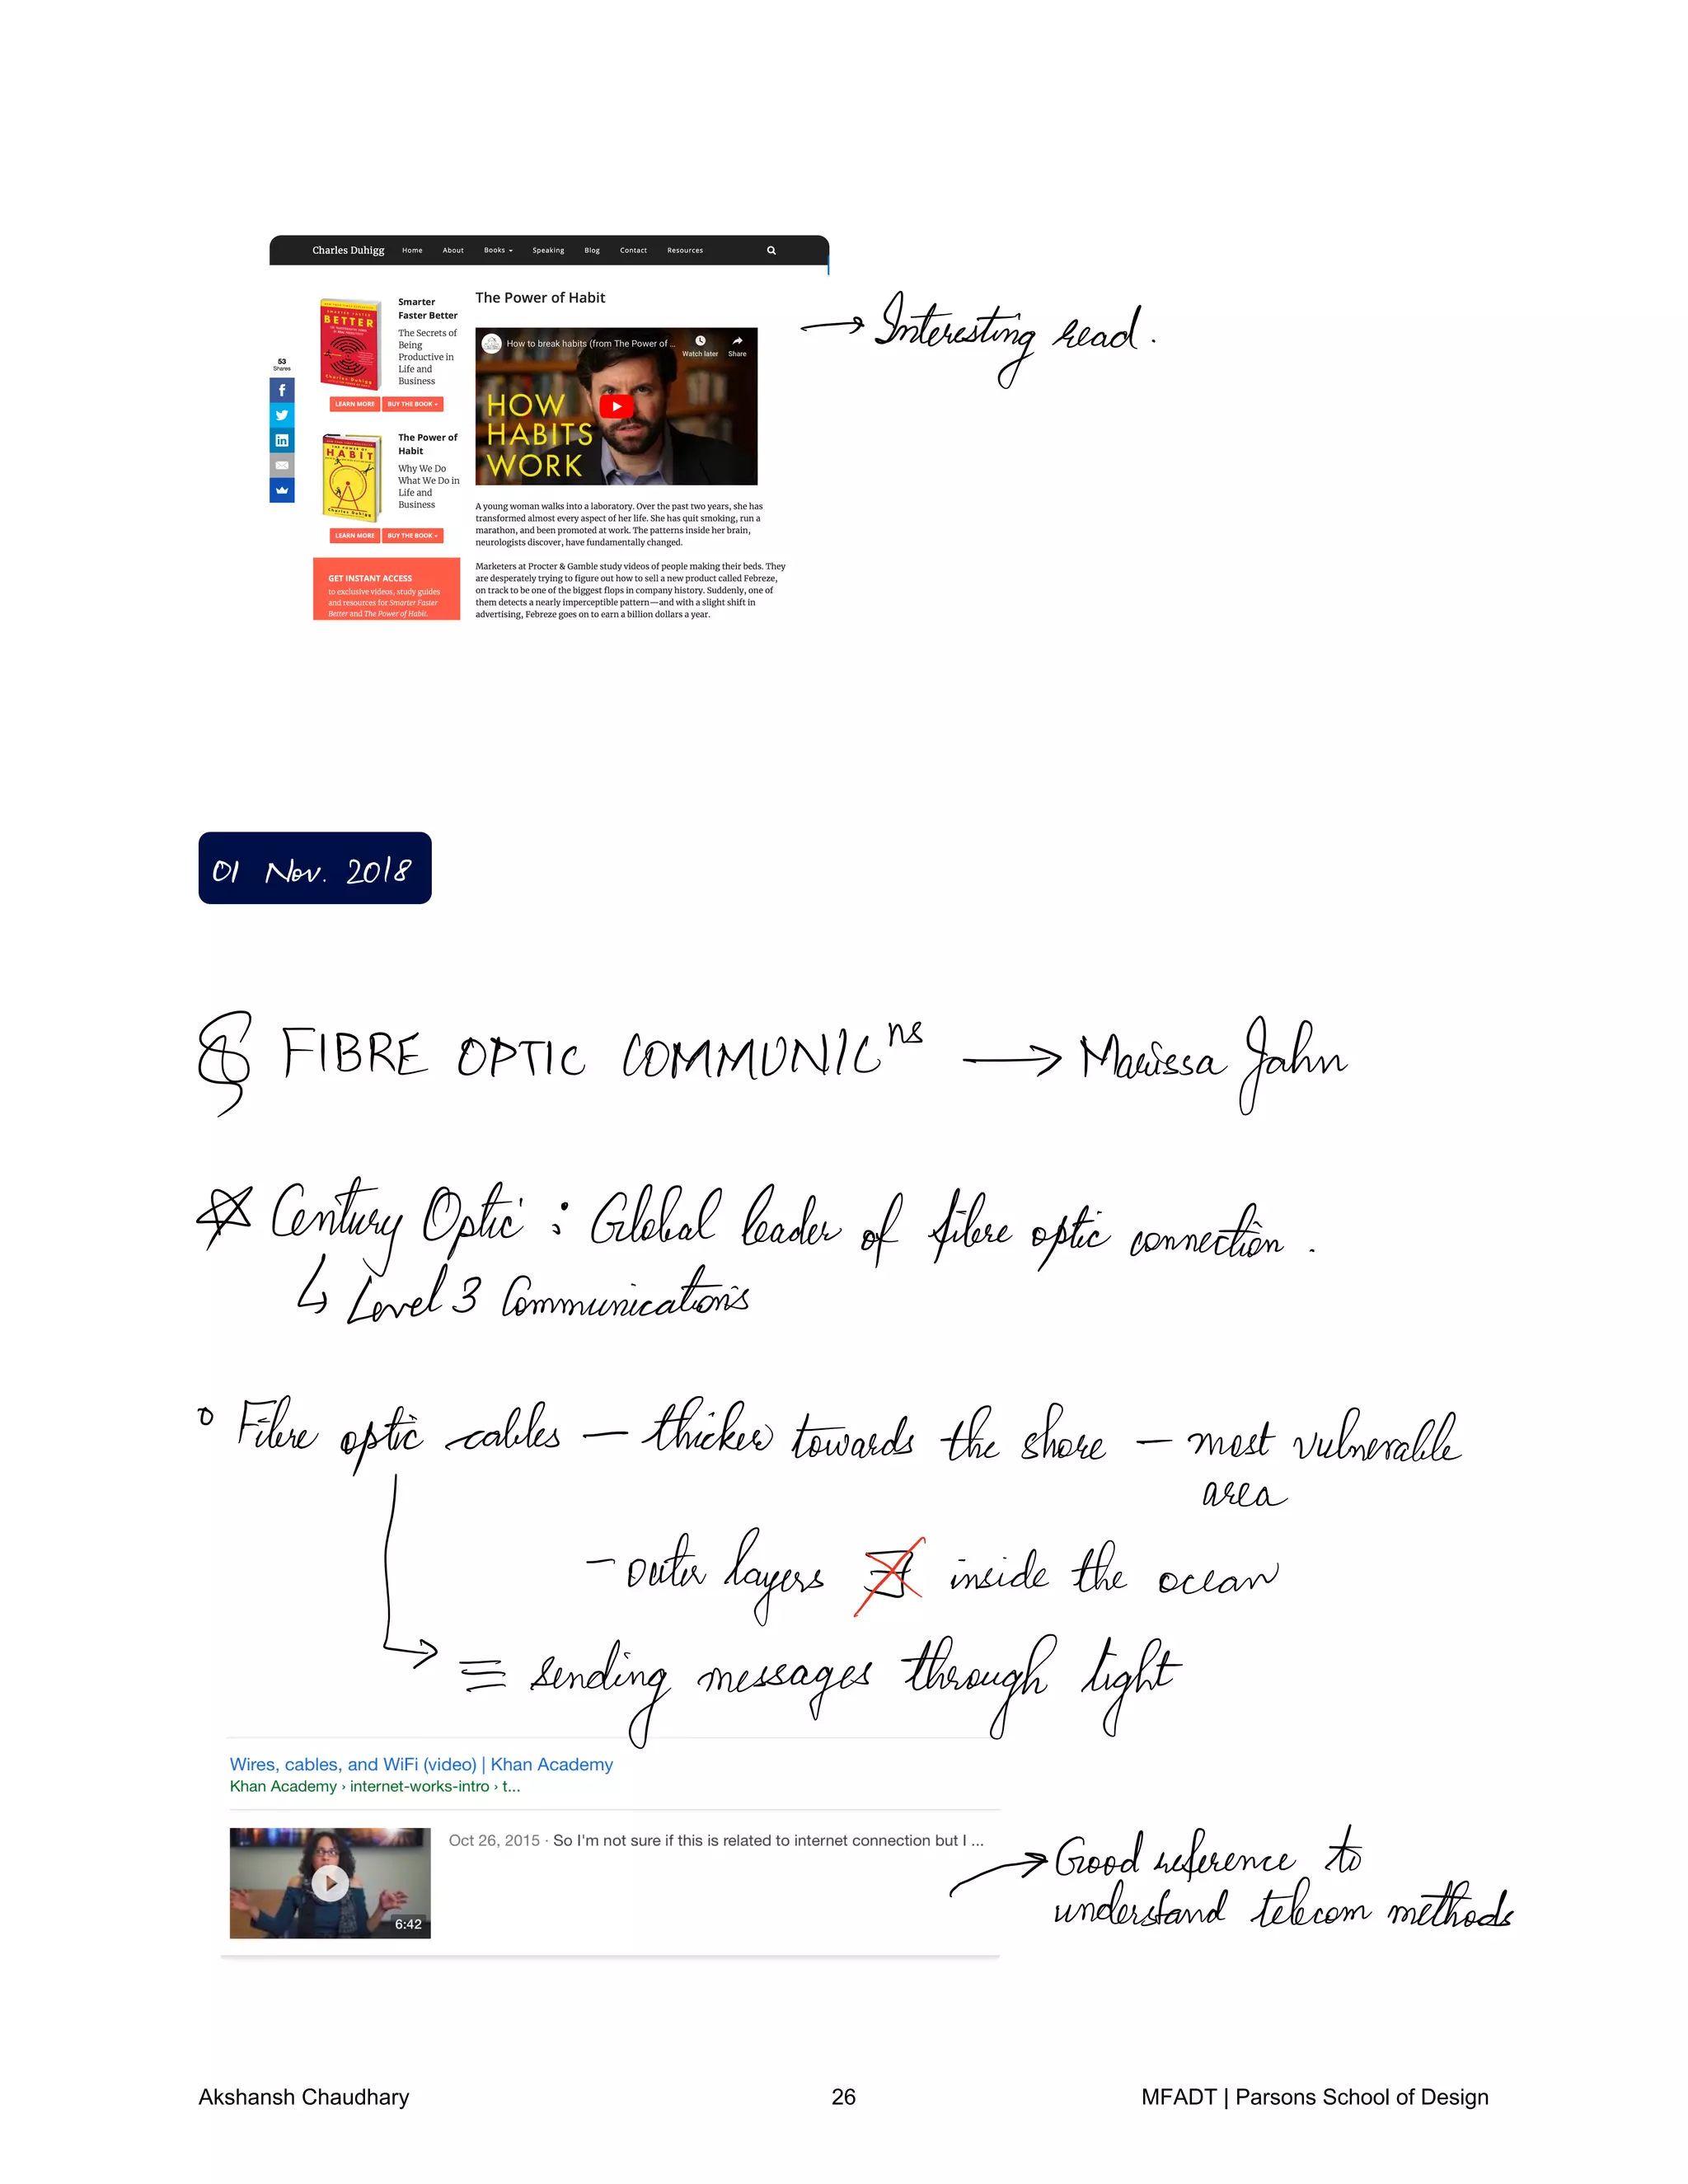 Charles Duhigg Home About Books Speaking Blog Contact Resources
The Power of Habit
Smarter
Faster Better
The Secrets of
Being
Productive in
Life and
Business
LEARN MORE BUY THE BOOK
SMARTER FASTER
BETTER
Charles Duhigg
53
Shares
The Power of
Habit
Why We Do
What We Do in
Life and
Business
LEARN MORE BUY THE BOOK
THE POWER OF
HABIT
Charles Duhigg
GET INSTANT ACCESS
to exclusive videos, study guides
and resources for Smarter Faster
Better and The Power of Habit.
How to break habits (from The Power of ...
Watch later Share
HOW
HABITS
WORK
A young woman walks into a laboratory. Over the past two years, she has
transformed almost every aspect of her life. She has quit smoking, run a
marathon, and been promoted at work. The patterns inside her brain,
neurologists discover, have fundamentally changed.
Marketers at Procter & Gamble study videos of people making their beds. They
are desperately trying to figure out how to sell a new product called Febreze,
on track to be one of the biggest flops in company history. Suddenly, one of
them detects a nearly imperceptible pattern—and with a slight shift in
advertising, Febreze goes on to earn a billion dollars a year.
→ Interesting read.
01 Nov. 2018
§ FIBRE OPTIC COMMUNICns → Marissa Jahn
☆ Century Optic : Global leader of fibre optic connection.
↳ Level 3 Communications
° Fibre optic cables – thicker towards the shore – most vulnerable
area
- outer layers ∄ inside the ocean
= sending messages through light
Wires, cables, and WiFi (video) | Khan Academy
Khan Academy › internet-works-intro › t...
Oct 26, 2015 · So I'm not sure if this is related to internet connection but I ...
6:42
→ Good reference to
understand telecom methods
Akshansh Chaudhary 26 MFADT | Parsons School of Design